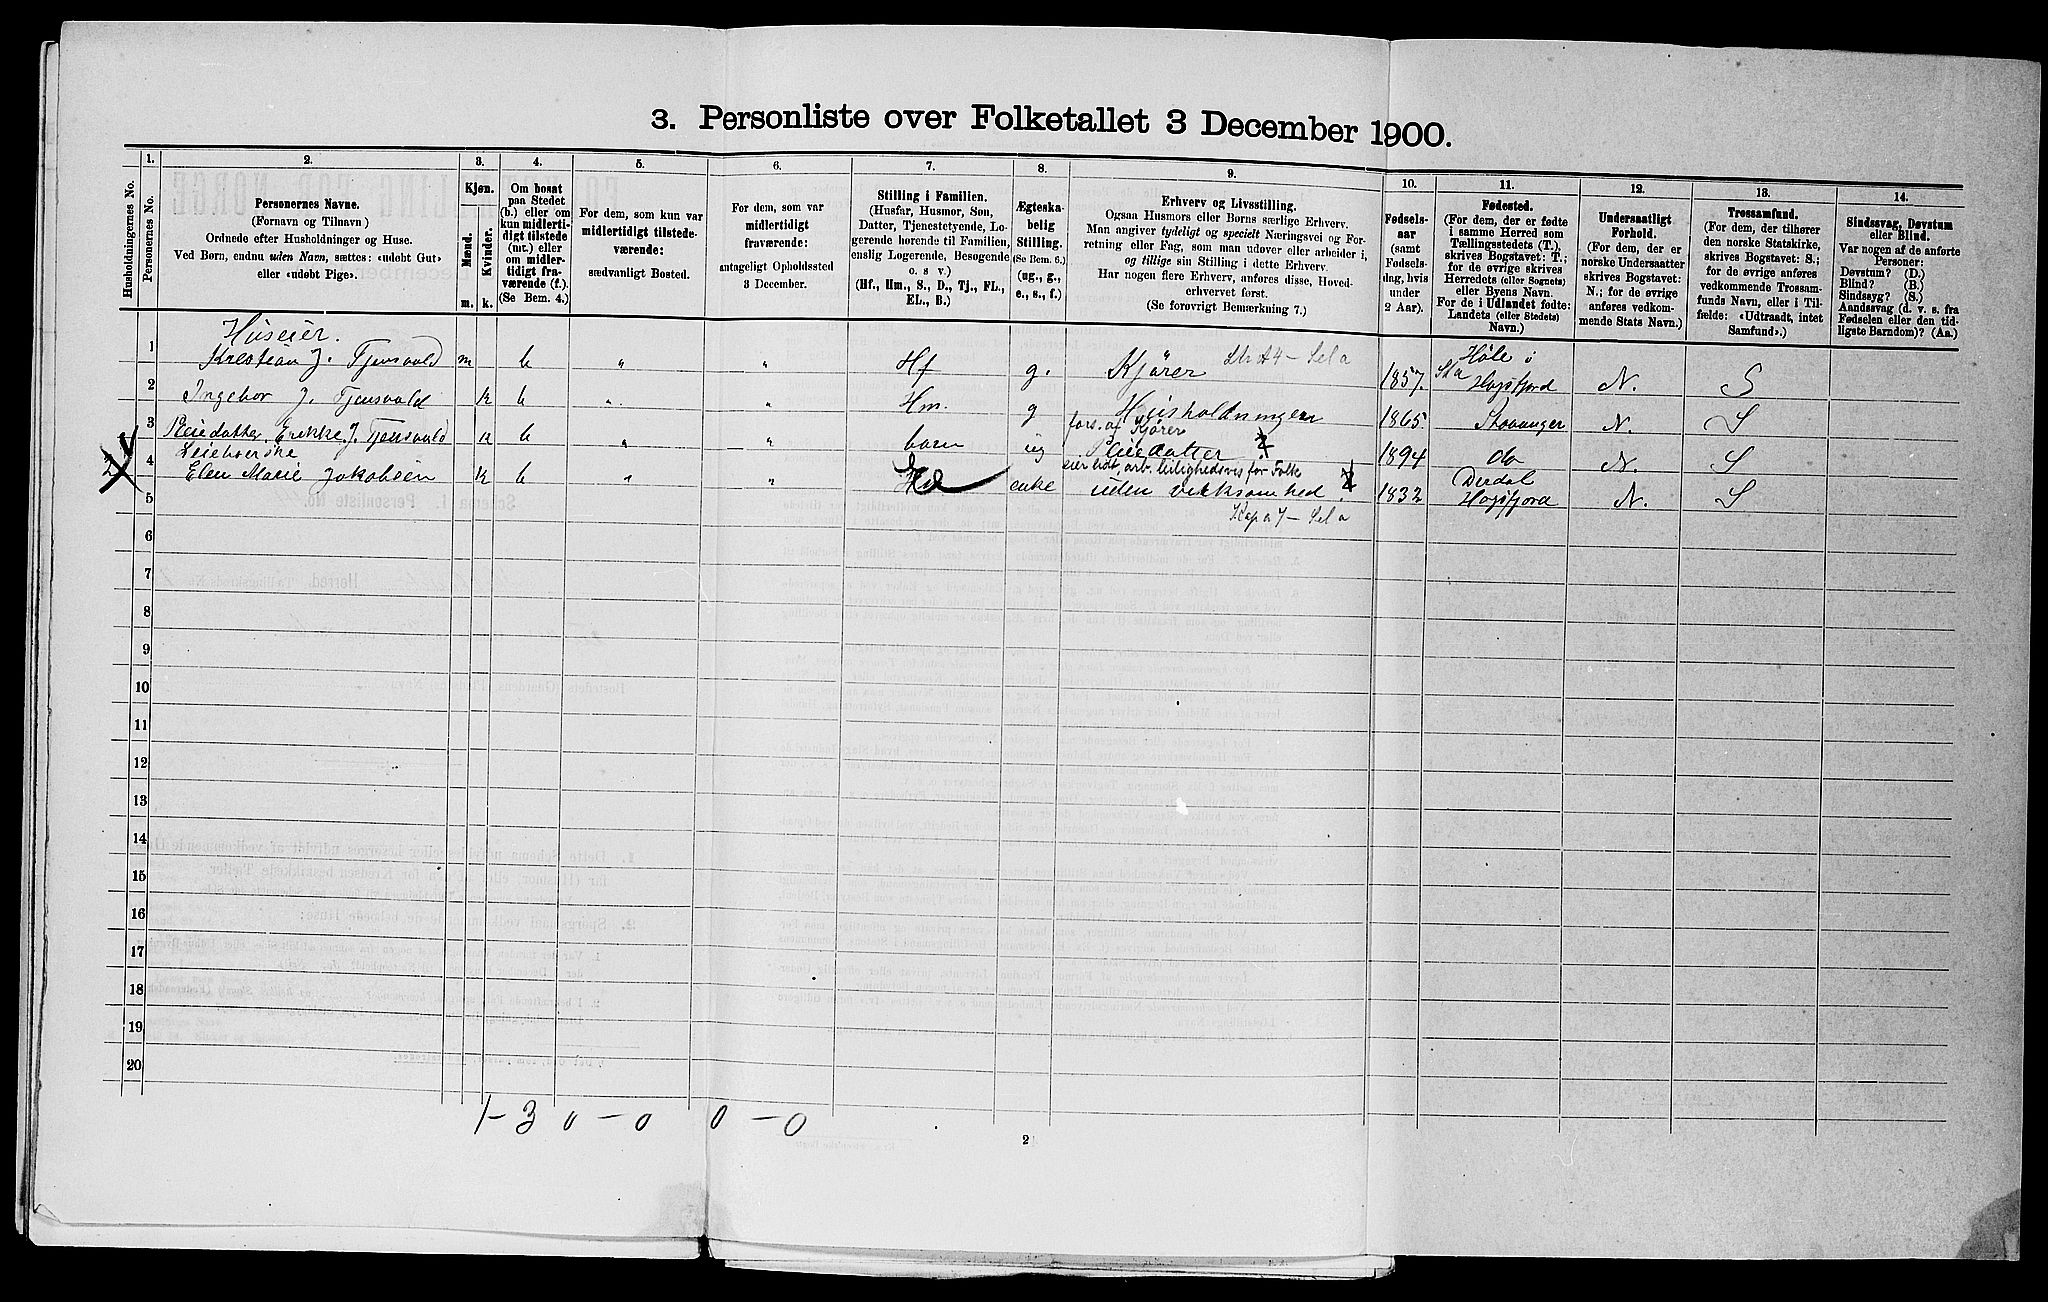 3. Personliste over Folketallet 3 December 1900.
Husholdningernes No.
1.
Personernes No.
2.
Personernes Navne.
(Fornavn og Tilnavn)
Ordnede efter Husholdninger og Huse.
Ved Børn, endnu uden Navn, sættes: «udøbt Gut»
eller «udøbt Pige».
3.
Kjøn.
Mænd.
Kvinder.
m.
k.
4.
Om bosat
paa Stedet
(b.) eller om
kun midlerti-
digt tilstede
(mt.) eller
om midler-
tidigt fra-
værende (f.).
(Se Bem. 4.)
5.
For dem, som kun var
midlertidigt tilstede-
værende:
sædvanligt Bosted.
6.
For dem, som var
midlertidigt
fraværende:
antageligt Opholdssted
3 December.
7.
Stilling i Familien.
(Husfar, Husmor, Søn,
Datter, Tjenestetyende, Lo-
gerende hørende til Familien,
enslig Logerende, Besøgende
o. s v.)
(Hf., Hm., S., D., Tj., FL.,
EL., B.)
8.
Ægteska-
belig
Stilling.
(Se Bem. 6.)
(ug., g.,
e., s., f.)
9.
Erhverv og Livsstilling.
Ogsaa Husmors eller Børns særlige Erhverv.
Man angiver tydeligt og specielt Næringsvei og For-
retning eller Fag, som man udøver eller arbeider i,
og tillige sin Stilling i dette Erhverv.
Har nogen flere Erhverv, anføres disse, Hoved-
erhvervet først.
(Se forøvrigt Bemærkning 7.)
10.
Fødsels-
aar
(samt
Fødsels-
dag, hvis
under
2 Aar).
11.
Fødested.
(For dem, der er fødte
i samme Herred som
Tællingsstedets (T.),
skrives Bogstavet: T.;
for de øvrige skrives
Herredets (eller Sognets)
eller Byens Navn.
For de i Udlandet fødte:
Landets (eller Stedets)
Navn.)
12.
Undersaatligt
Forhold.
(For dem, der er
norske Undersaatter
skrives Bogstavet:
N.; for de øvrige
anføres vedkom-
mende Stats Navn.)
13.
Trossamfund.
(For dem, der tilhører
den norske Statskirke,
skrives Bogstavet: S.;
for de øvrige anføres
vedkommende Trossam-
funds Navn, eller i Til-
fælde: «Udtraadt, intet
Samfund».)
14.
Sindssvag, Døvstum
eller Blind.
Var nogen af de anførte
Personer:
Døvstum? (D.)
Blind? (B.)
Sindssyg? (S.)
Aandssvag (d. v. s. fra
Fødselen eller den tid-
ligste Barndom)? (Aa.)
Huseier
1 Kristian J. Tjensvold m b " " Hf g. Kjører 1857. Høle i Høgsfjord N. S
2 Ingebor J. Tjensvold k b " " Hm. g Husholdningen 1865 Stavanger N. S
fors. af Kjører
3 Pleiedatter Erikke J. Tjensvold k b " " barn ug Pleiedatter 1894 do N. S
Leieboerske
eier lidt, arb. leilighedsvis for Folk
4 Elen Marie Jakobsen k b " " enke uden virksomhed 1832 Dirdal Høgsfjord N. S
5
6
7
8
9
10
11
12
13
14
15
16
17
18
19
20
1-3 0-0 0-0
2